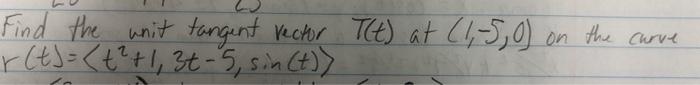 Find the unit tangent vector T(t) at (1,-5,0) on the curve
r(t)=<t²+1, 3t-5, sin(t)>